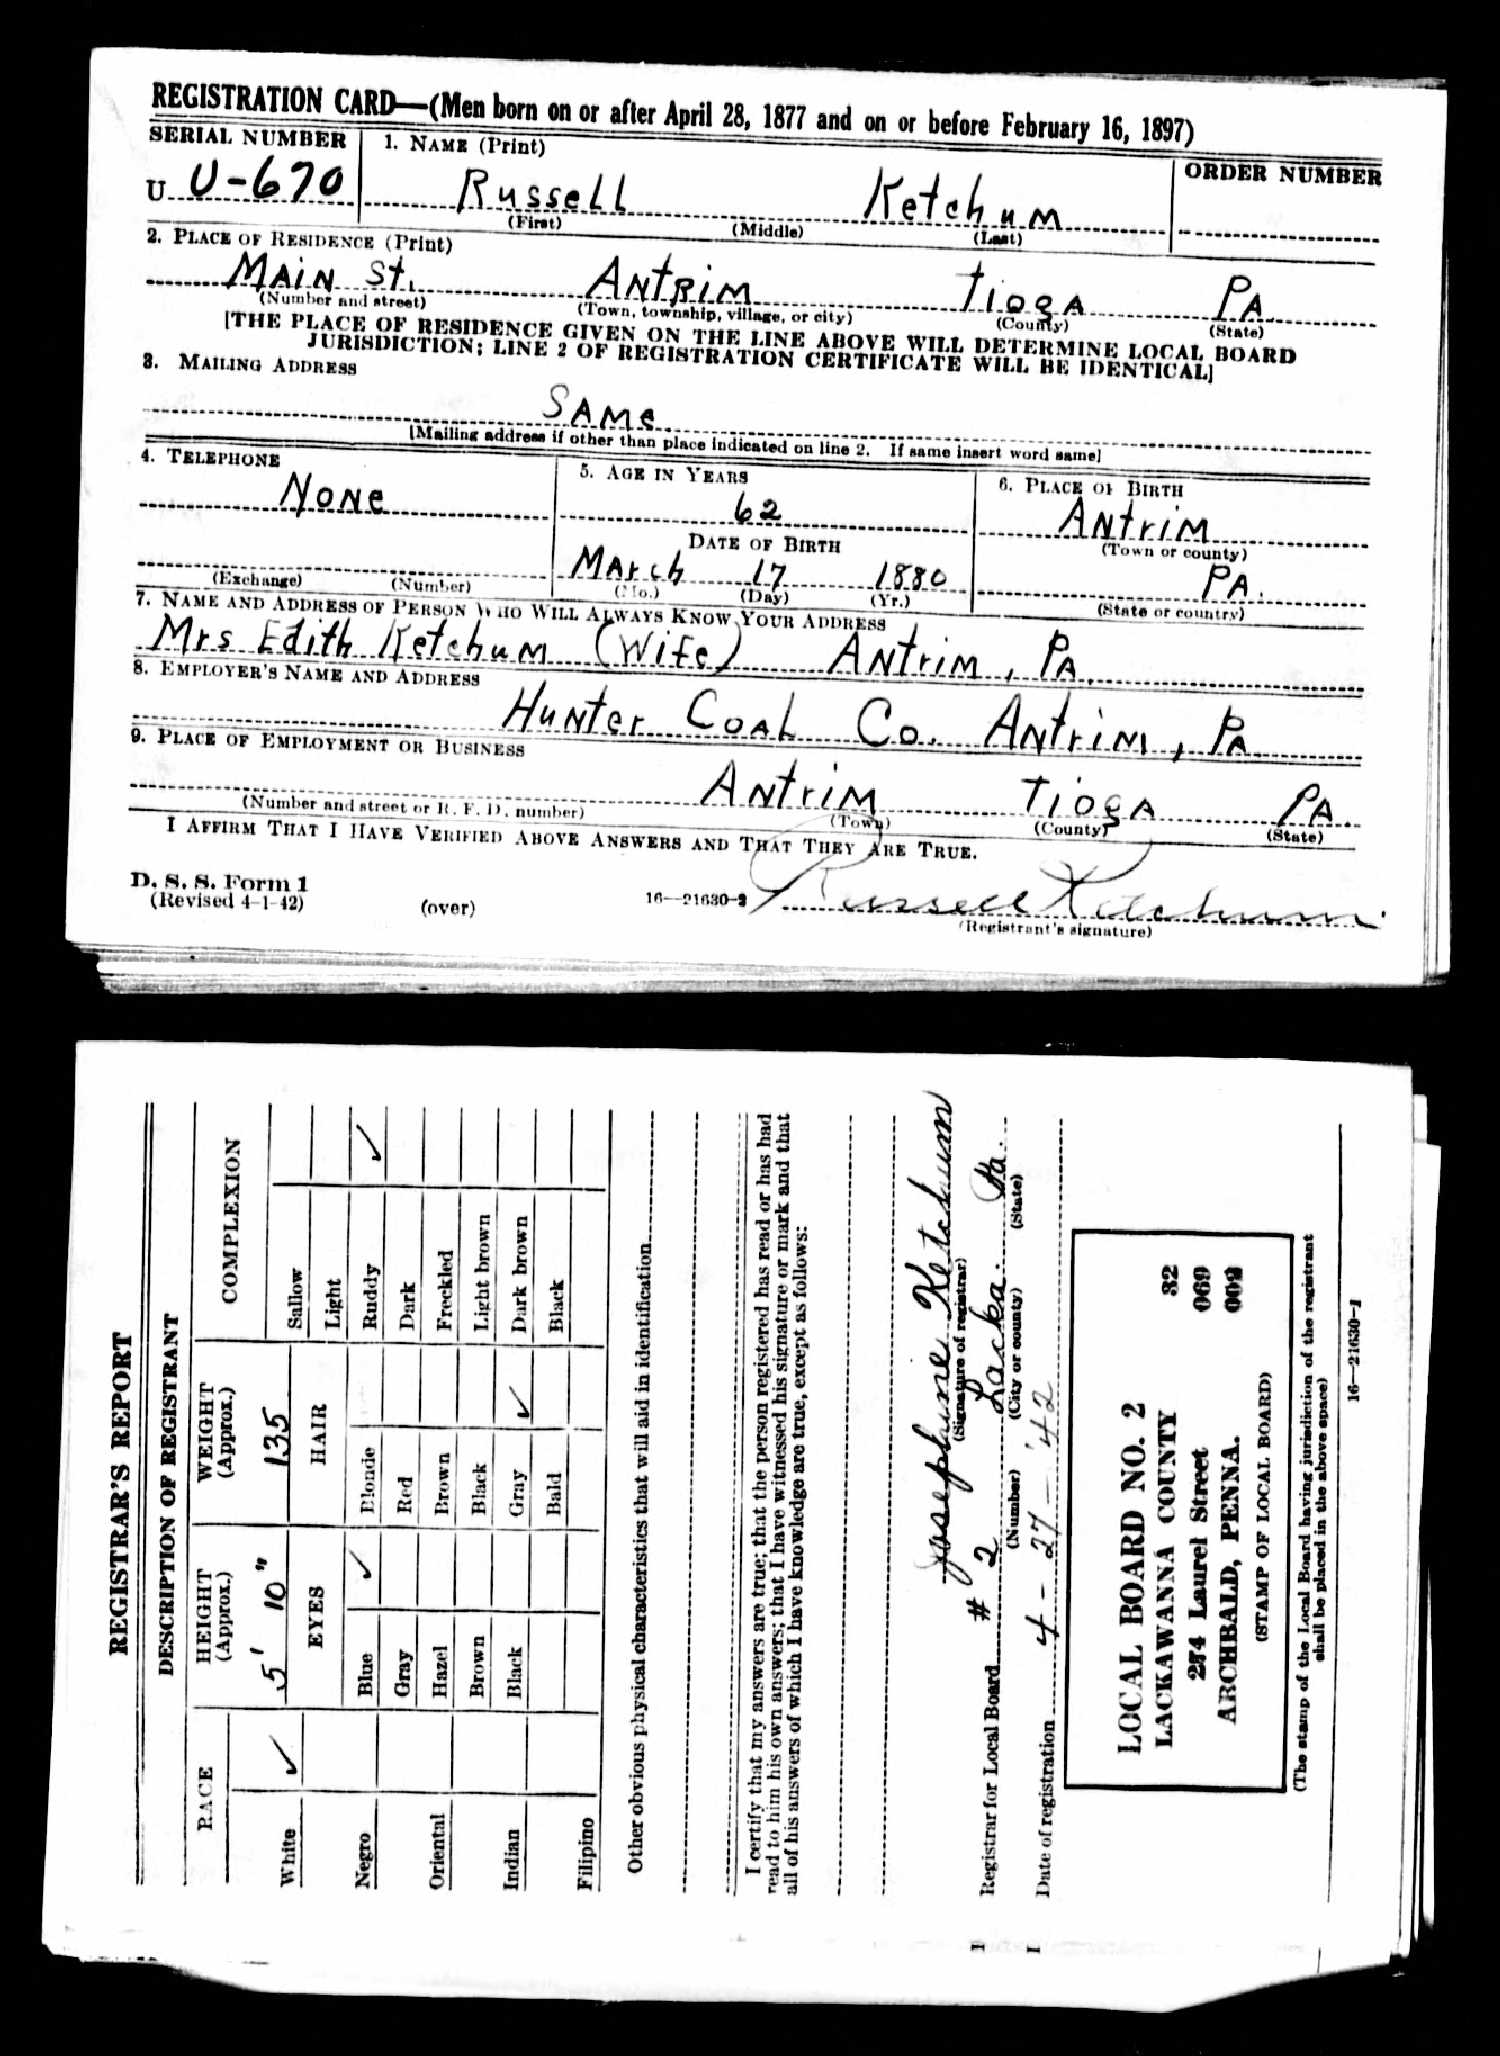 REGISTRATION CARD—(Men born on or after April 28, 1877 and on or before February 16, 1897)
SERIAL NUMBER 1. NAME (Print) ORDER NUMBER
U U-670 Russell Ketchum
(First) (Middle) (Last)
2. PLACE OF RESIDENCE (Print)
MAIN St. ANTRIM TIOGA PA
(Number and street) (Town, township, village, or city) (County) (State)
[THE PLACE OF RESIDENCE GIVEN ON THE LINE ABOVE WILL DETERMINE LOCAL BOARD
JURISDICTION; LINE 2 OF REGISTRATION CERTIFICATE WILL BE IDENTICAL]
3. MAILING ADDRESS
SAME
[Mailing address if other than place indicated on line 2. If same insert word same]
4. TELEPHONE 5. AGE IN YEARS 6. PLACE OF BIRTH
NONE 62 ANTRIM
DATE OF BIRTH (Town or county)
March 17 1880 PA.
(Exchange) (Number) (Mo.) (Day) (Yr.) (State or country)
7. NAME AND ADDRESS OF PERSON WHO WILL ALWAYS KNOW YOUR ADDRESS
Mrs Edith Ketchum (Wife) ANTRIM, PA.
8. EMPLOYER'S NAME AND ADDRESS
HUNTER COAL Co. ANTRIM, PA
9. PLACE OF EMPLOYMENT OR BUSINESS
ANTRIM TIOGA PA.
(Number and street or R. F. D. number) (Town) (County) (State)
I AFFIRM THAT I HAVE VERIFIED ABOVE ANSWERS AND THAT THEY ARE TRUE.
D. S. S. Form 1
(Revised 4-1-42) (over) 16—21630-2 Russell Ketchum
(Registrant's signature)
REGISTRAR'S REPORT
DESCRIPTION OF REGISTRANT
RACE HEIGHT (Approx.) WEIGHT (Approx.) COMPLEXION
5' 10" 135
White ✓ EYES HAIR Sallow
Light
Negro Blue ✓ Blonde Ruddy ✓
Gray Red Dark
Oriental Hazel Brown Freckled
Brown Black Light brown
Indian Black Gray ✓ Dark brown
Bald Black
Filipino
Other obvious physical characteristics that will aid in identification
I certify that my answers are true; that the person registered has read or has had
read to him his own answers; that I have witnessed his signature or mark and that
all of his answers of which I have knowledge are true, except as follows:
Josephine Ketchum
(Signature of registrar)
Registrar for Local Board # 2 Lacka. Pa.
(Number) (City or county) (State)
Date of registration 4-27-'42
LOCAL BOARD NO. 2 32
LACKAWANNA COUNTY 069
274 Laurel Street 002
ARCHBALD, PENNA.
(STAMP OF LOCAL BOARD)
(The stamp of the Local Board having jurisdiction of the registrant
shall be placed in the above space)
16—21630-1